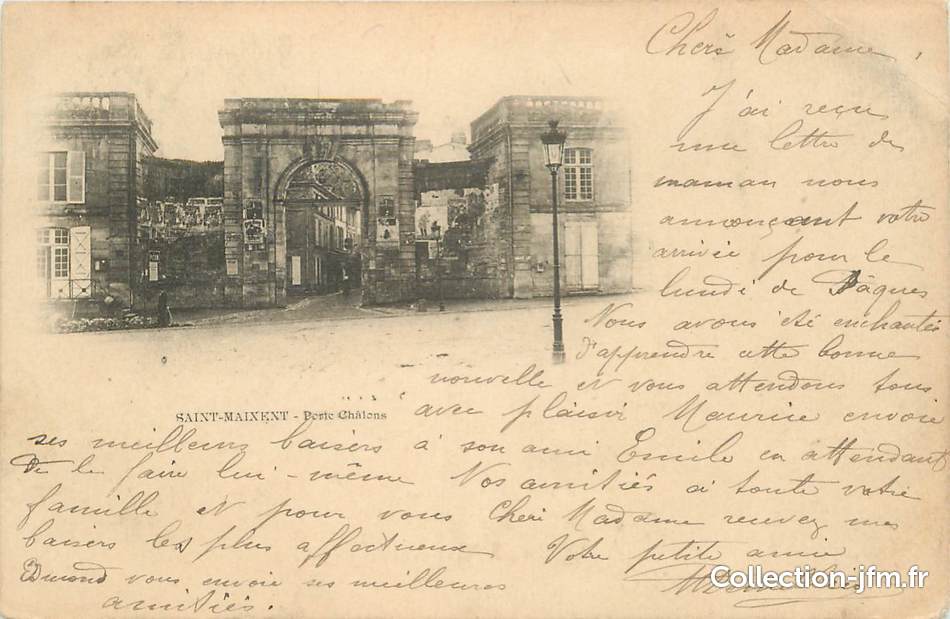 Cherè Madame,
J'ai reçu
une lettre de
maman nous
annonçant votre
arrivée pour le
lundi de Pâques
Nous avons été enchantés
d'apprendre cette bonne
nouvelle et vous attendons tous
SAINT-MAIXENT - Porte Châlons
avec plaisir Maurice envoie
ses meilleurs baisers à son ami Emile en attendant
de le faire lui-même Nos amitiés à toute votre
famille et pour vous Cherè Madame recevez mes
baisers les plus affectueux Votre petite amie
Edmond vous envoie ses meilleures
amitiés.
Collection-jfm.fr